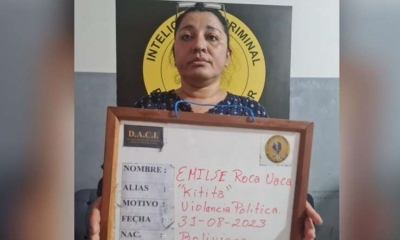 INTELIGENCIA CRIMINAL
D.A.C.I.
NOMBRE : EMILSE Roca Vaca
ALIAS "Kitita"
MOTIVO : Violencia Politica
FECHA 31-08-2023
NAC.